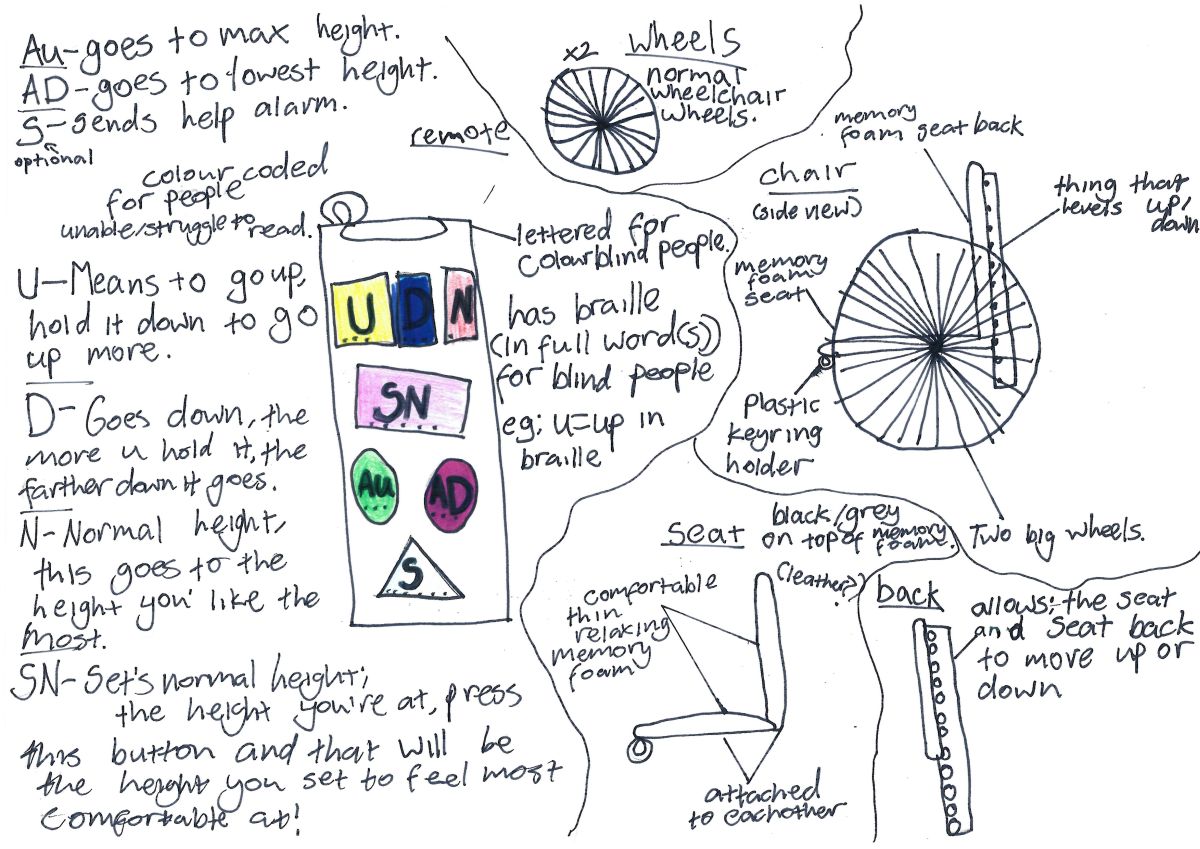 Au-goes to max height.
AD-goes to lowest height.
S-sends help alarm.
optional
colour coded
for people
unable/struggle to read.
U-Means to go up,
hold it down to go
up more.
D- Goes down, the
more u hold it, the
farther down it goes.
N-Normal height,
this goes to the
height you'd like the
most.
SN-Set's normal height;
the height you're at, press
this button and that will be
the height you set to feel most
comfortable at!
remote
U D N
SN
Au AD
S
lettered for
colourblind people.
has braille
(in full word(s))
for blind people
eg: u=up in
braille
x2 wheels
normal
wheelchair
wheels.
chair
(side view)
memory
foam seat back
thing that
levels up/
down
memory
foam
seat
plastic
keyring
holder
Two big wheels.
seat
black/grey
on top of memory
foam.
(leather?)
comfortable
thin
relaxing
memory
foam
attached
to eachother
back
allows: the seat
and seat back
to move up or
down